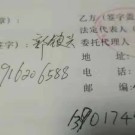 章）：
乙方（签字盖
法定代表人（
字）：
委托代理人
916206588
电话：
地址：
邮编
1390174